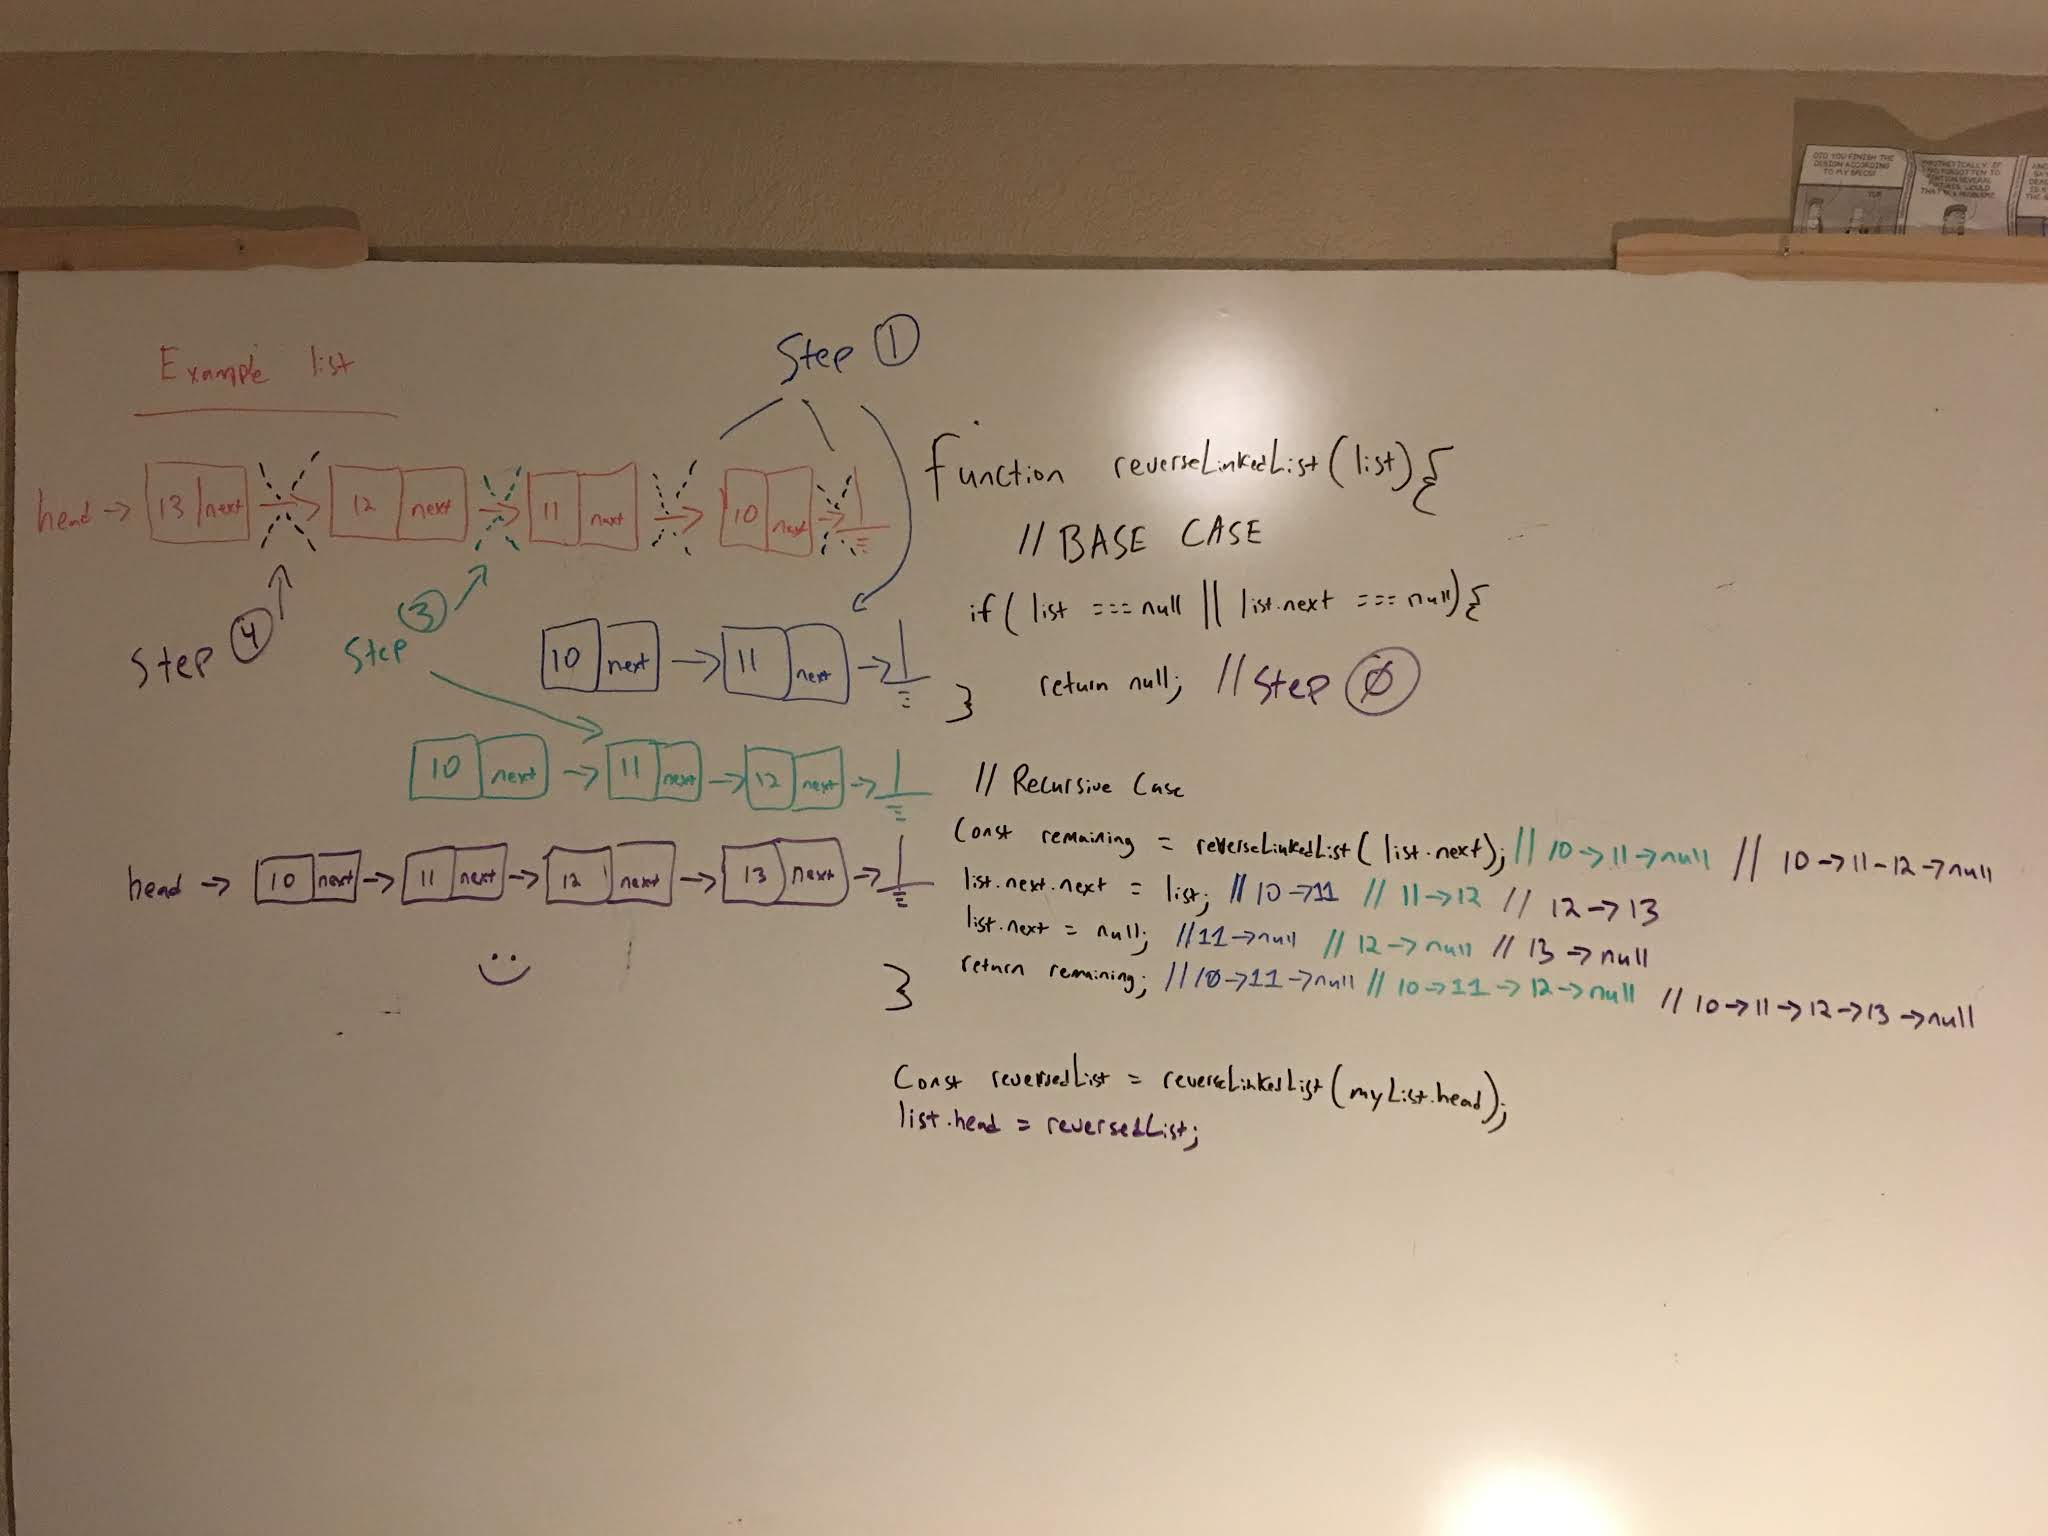 DID YOU FINISH THE
DESIGN ACCORDING
TO MY SPECS?
YUP.
Example list
Step 1
head → 13 next → 12 next → 11 next → 10 next →
Step 4
Step 3
10 next → 11 next →
10 next → 11 next → 12 next →
head → 10 next → 11 next → 12 next → 13 next →
function reverseLinkedList(list){
// BASE CASE
if( list === null || list.next === null){
return null; // Step 0
}
// Recursive Case
Const remaining = reverseLinkedList( list.next); // 10→11→null // 10→11-12→null
list.next.next = list; // 10→11 // 11→12 // 12→13
list.next = null; // 11→null // 12→null // 13→null
return remaining; // 10→11→null // 10→11→12→null // 10→11→12→13→null
}
Const reversedList = reverseLinkedList(myList.head);
list.head = reversedList;